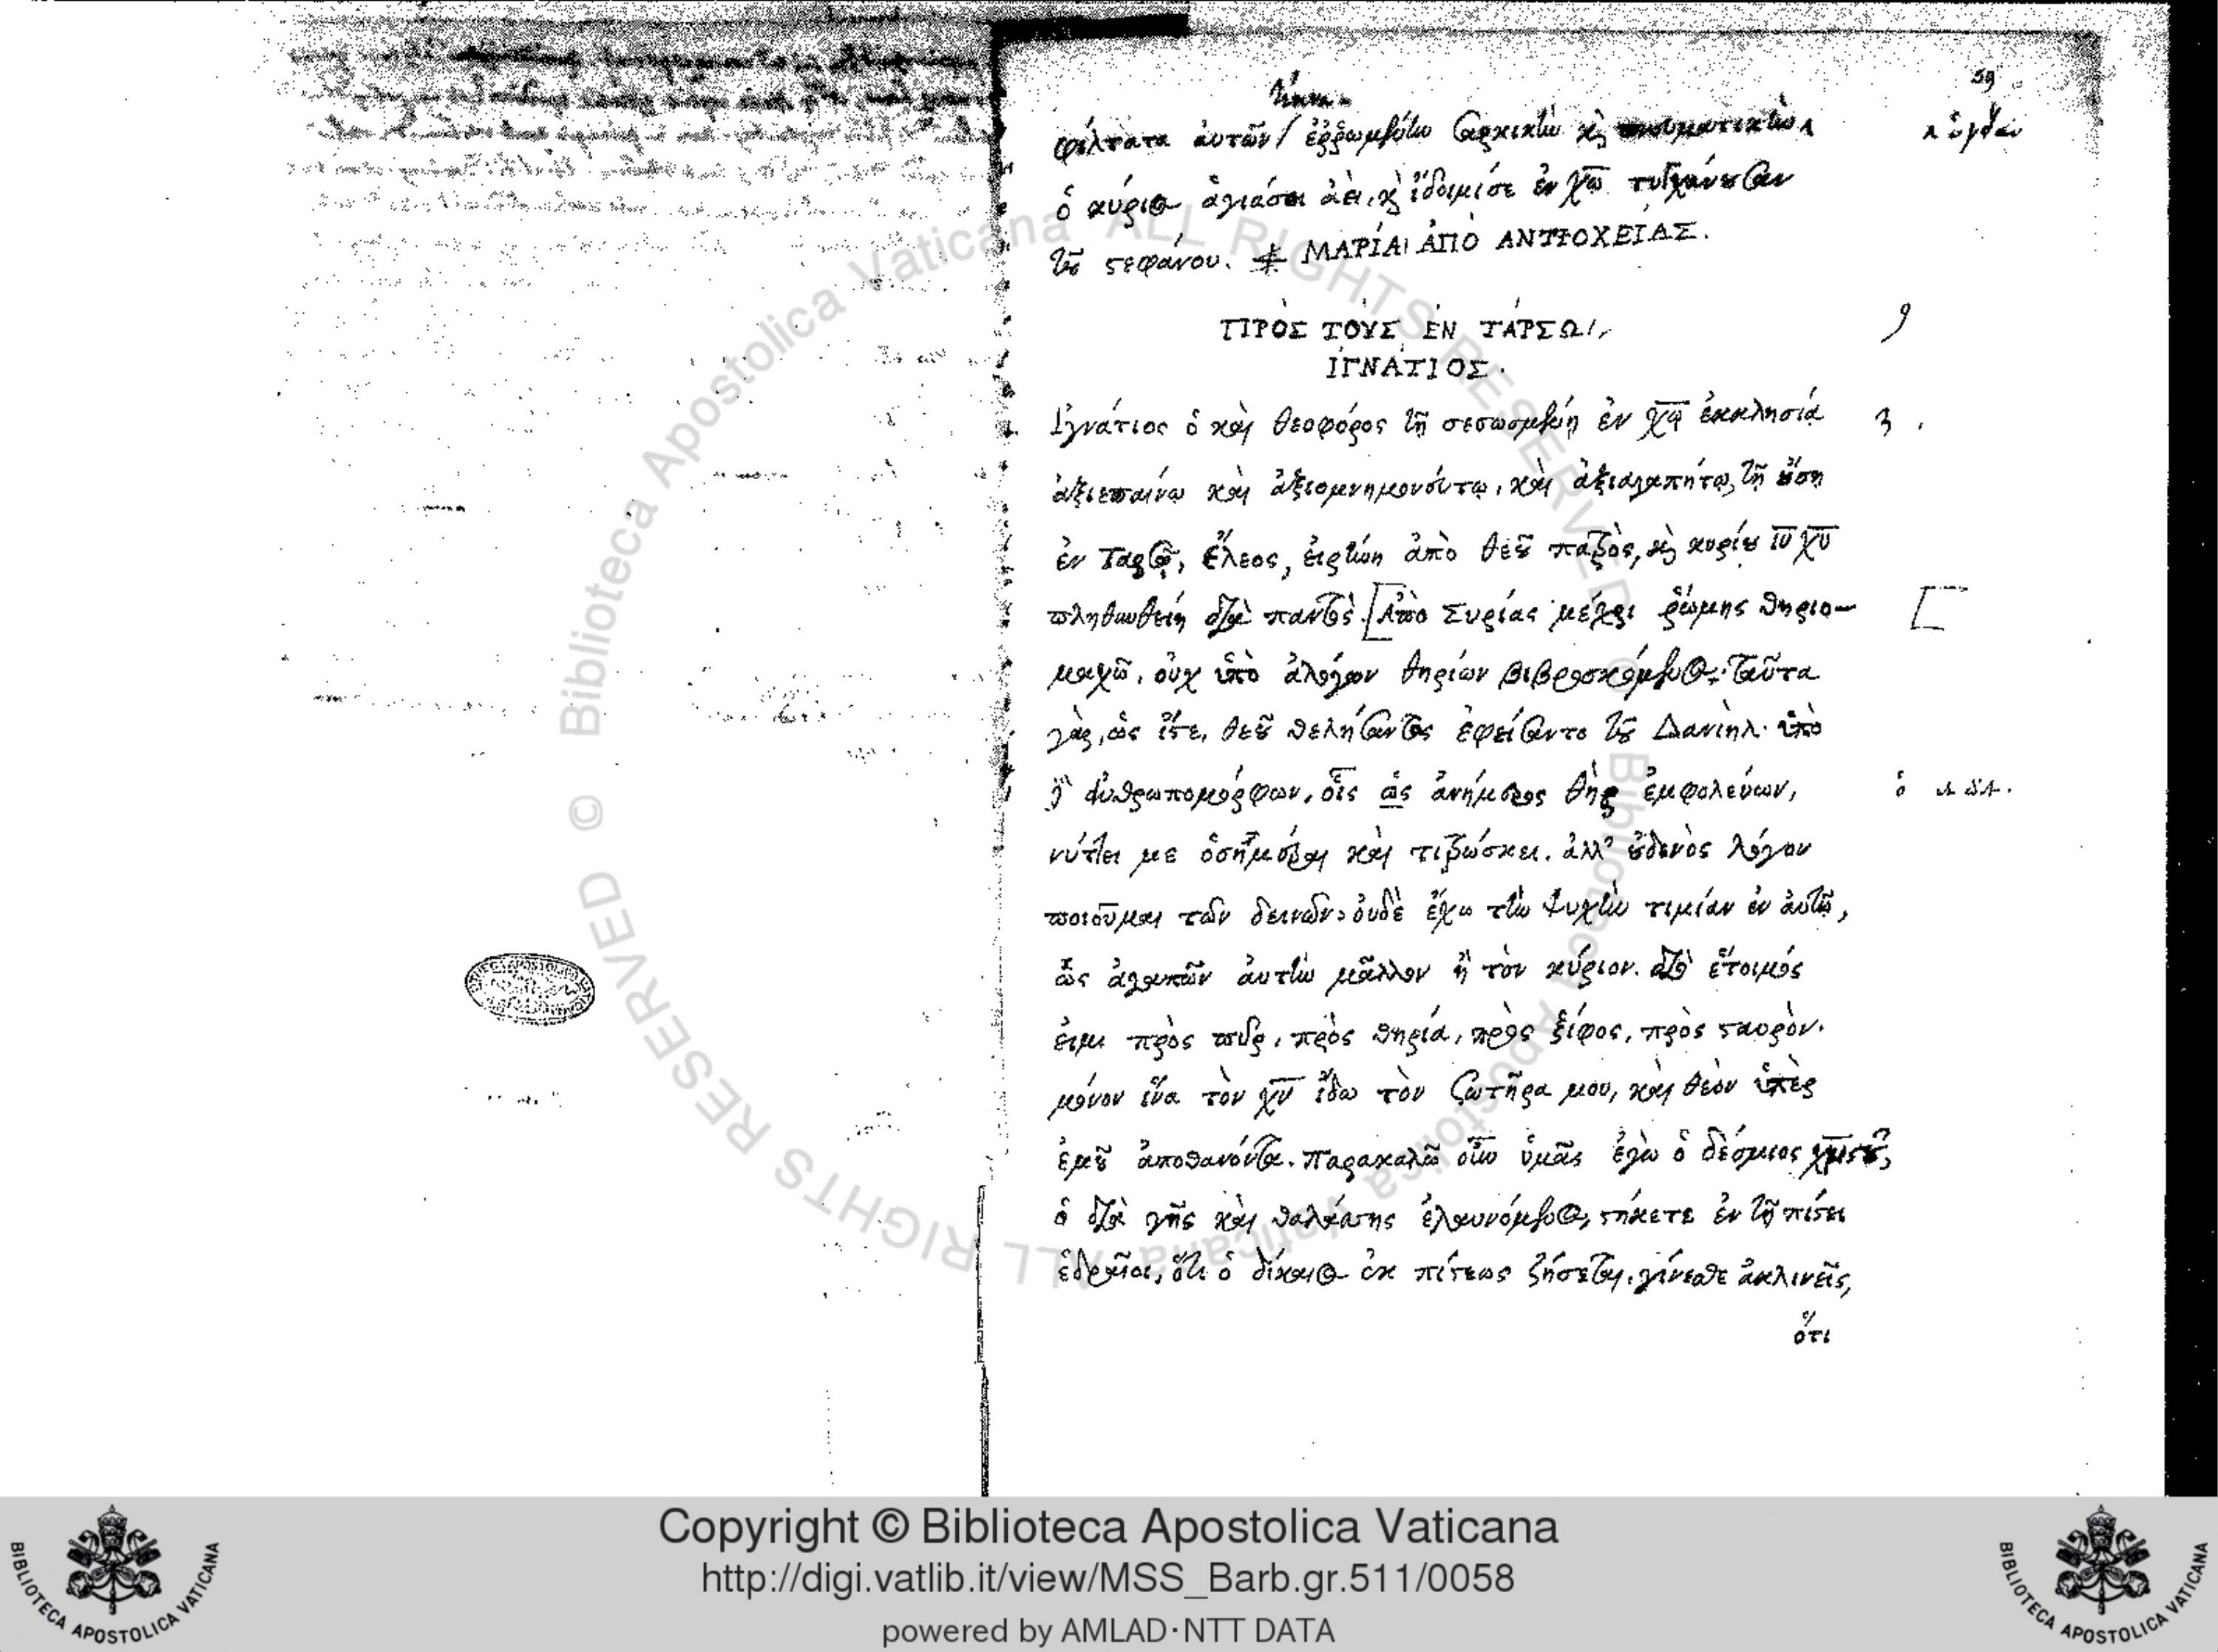 59
τέκνα
φίλτατα αὐτῶν / ἐῤῥωμένην σαρκικὴν κỳ πνευματικὴν
ὁ κύριος ἁγιάσοι ἀεὶ, κỳ ἴδοιμί σε ἐν χῶ τυγχάνουσαν
τοῦ στεφάνου. ΜΑΡΊΑΙ ἈΠῸ ἈΝΤΙΟΧΕΊΑΣ.
ΠΡῸΣ ΤΟῪΣ ἘΝ ΤΆΡΣΩΙ,
ἸΓΝΆΤΙΟΣ.
Ἰγνάτιος ὁ καὶ θεοφόρος τῇ σεσωσμένῃ ἐν χῷ ἐκκλησίᾳ
ἀξιεπαίνῳ καὶ ἀξιομνημονεύτῳ, καὶ ἀξιαγαπήτῳ, τῇ οὔσῃ
ἐν Ταρσῷ, ἔλεος, εἰρήνη ἀπὸ θεοῦ πατρὸς, κỳ κυρίου ιυ χυ
πληθυνθείη διὰ παντός. [Ἀπὸ Συρίας μέχρι ῥώμης θηριο-
[
μαχῶ, οὐχ ὑπὸ ἀλόγων θηρίων βιβρωσκόμενος· ταῦτα
γὰρ, ὡς ἴστε, θεοῦ θελήσαντος ἐφείσαντο τοῦ Δανιὴλ. ὑπὸ
δὲ ἀνθρωπομόρφων, οἷς ὡς ἀνήμερος θὴρ ἐμφολεύων,
νύττει με ὁσημέραι καὶ τιτρώσκει. ἀλλ' οὐδενὸς λόγον
ποιοῦμαι τῶν δεινῶν, οὐδὲ ἔχω τὴν ψυχὴν τιμίαν ἐν αὐτῷ,
ὡς ἀγαπῶν αὐτὴν μᾶλλον ἢ τὸν κύριον. διὸ ἕτοιμός
εἰμι πρὸς πῦρ, πρὸς θηρία, πρὸς ξίφος, πρὸς σταυρὸν.
μόνον ἵνα τὸν χν ἴδω τὸν σωτῆρα μου, καὶ θεὸν ὑπὲρ
ἐμοῦ ἀποθανόντα. παρακαλῶ οὖν ὑμᾶς ἐγὼ ὁ δέσμιος
ὁ διὰ γῆς καὶ θαλάσσης ἐλαυνόμενος, στήκετε ἐν τῇ πίστει
ἑδραῖοι, ὅτι ὁ δίκαιος ἐκ πίστεως ζήσεται. γίνεσθε ἀκλινεῖς,
ὅτι
Copyright © Biblioteca Apostolica Vaticana
http://digi.vatlib.it/view/MSS_Barb.gr.511/0058
powered by AMLAD·NTT DATA
BIBLIOTECA APOSTOLICA VATICANA
BIBLIOTECA APOSTOLICA VATICANA
© Biblioteca Apostolica Vaticana ALL RIGHTS RESERVED © Biblioteca Apostolica Vaticana ALL RIGHTS RESERVED